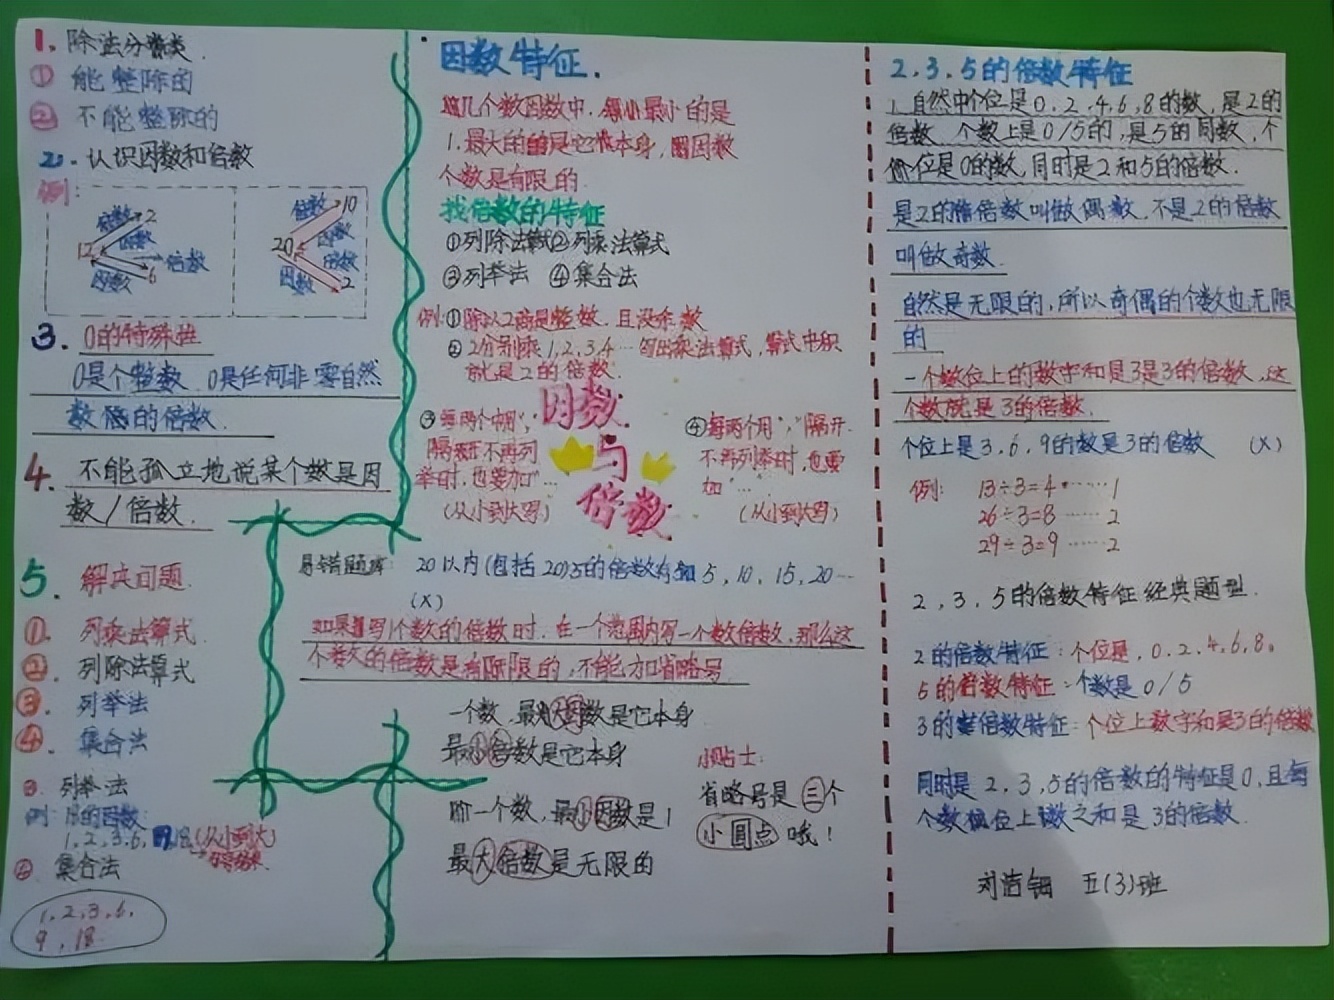 1. 除法分类
① 能整除的
② 不能整除的
2. 认识因数和倍数
例:
倍数 2
12 因数
因数 6 倍数
倍数 10
20 因数
因数 倍数
2
3. 0的特殊性
0是个整数 0是任何非零自然
数 的倍数.
4. 不能孤立地说某个数是因
数/倍数.
5. 解决问题.
①. 列乘法算式.
②. 列除法算式
③. 列举法
④. 集合法
③. 列举法
例: 18的因数:
1, 2, 3, 6, 18 (从小到大)
④. 集合法
1, 2, 3, 6,
9, 18
因数特征.
几个数因数中, 最小的是
1. 最大的是它本身, 因数
个数是有限的.
找倍数的特征
①列除法算式②列乘法算式
③列举法 ④集合法
例: ①除以2商是整数, 且没余数
② 2分别乘1, 2, 3, 4… 写出乘法算式, 算式中积
就是2的倍数.
③ 每两个中用“,”
隔开 不再列
举时, 也要加“…
(从小到大写)
因数
与
倍数
④每两个用“,”隔开.
不再列举时, 也要
加“…”
(从小到大写)
易错题库: 20以内(包括20)5的倍数有 5, 10, 15, 20…
(X)
如果写1个数的倍数时, 在一个范围内写一个数倍数, 那么这
个数的倍数是有限的, 不能加省略号
一个数, 最大因数是它本身
最小倍数是它本身
一个数, 最小因数是1
最大倍数是无限的
小贴士:
省略号是三个
小圆点 哦!
2, 3, 5的倍数特征
1. 自然中个位是0, 2, 4, 6, 8的数, 是2的
倍数, 个数上是0/5的, 是5的倍数, 个
位是0的数, 同时是2和5的倍数.
是2的倍数叫做偶数, 不是2的倍数
叫做奇数.
自然是无限的, 所以奇偶的个数也无限
的
一个数位上的数字和是3是3的倍数, 这
个数就是3的倍数.
个位上是3, 6, 9的数是3的倍数 (X)
例: 13÷3=4……1
26÷3=8……2
29÷3=9……2
2, 3, 5的倍数特征经典题型.
2的倍数特征: 个位是, 0, 2, 4, 6, 8.
5的倍数特征: 个数是0/5
3的倍数特征: 个位上数字和是3的倍数
同时是2, 3, 5的倍数的特征是0, 且每
个数位上数之和是3的倍数.
五(3)班